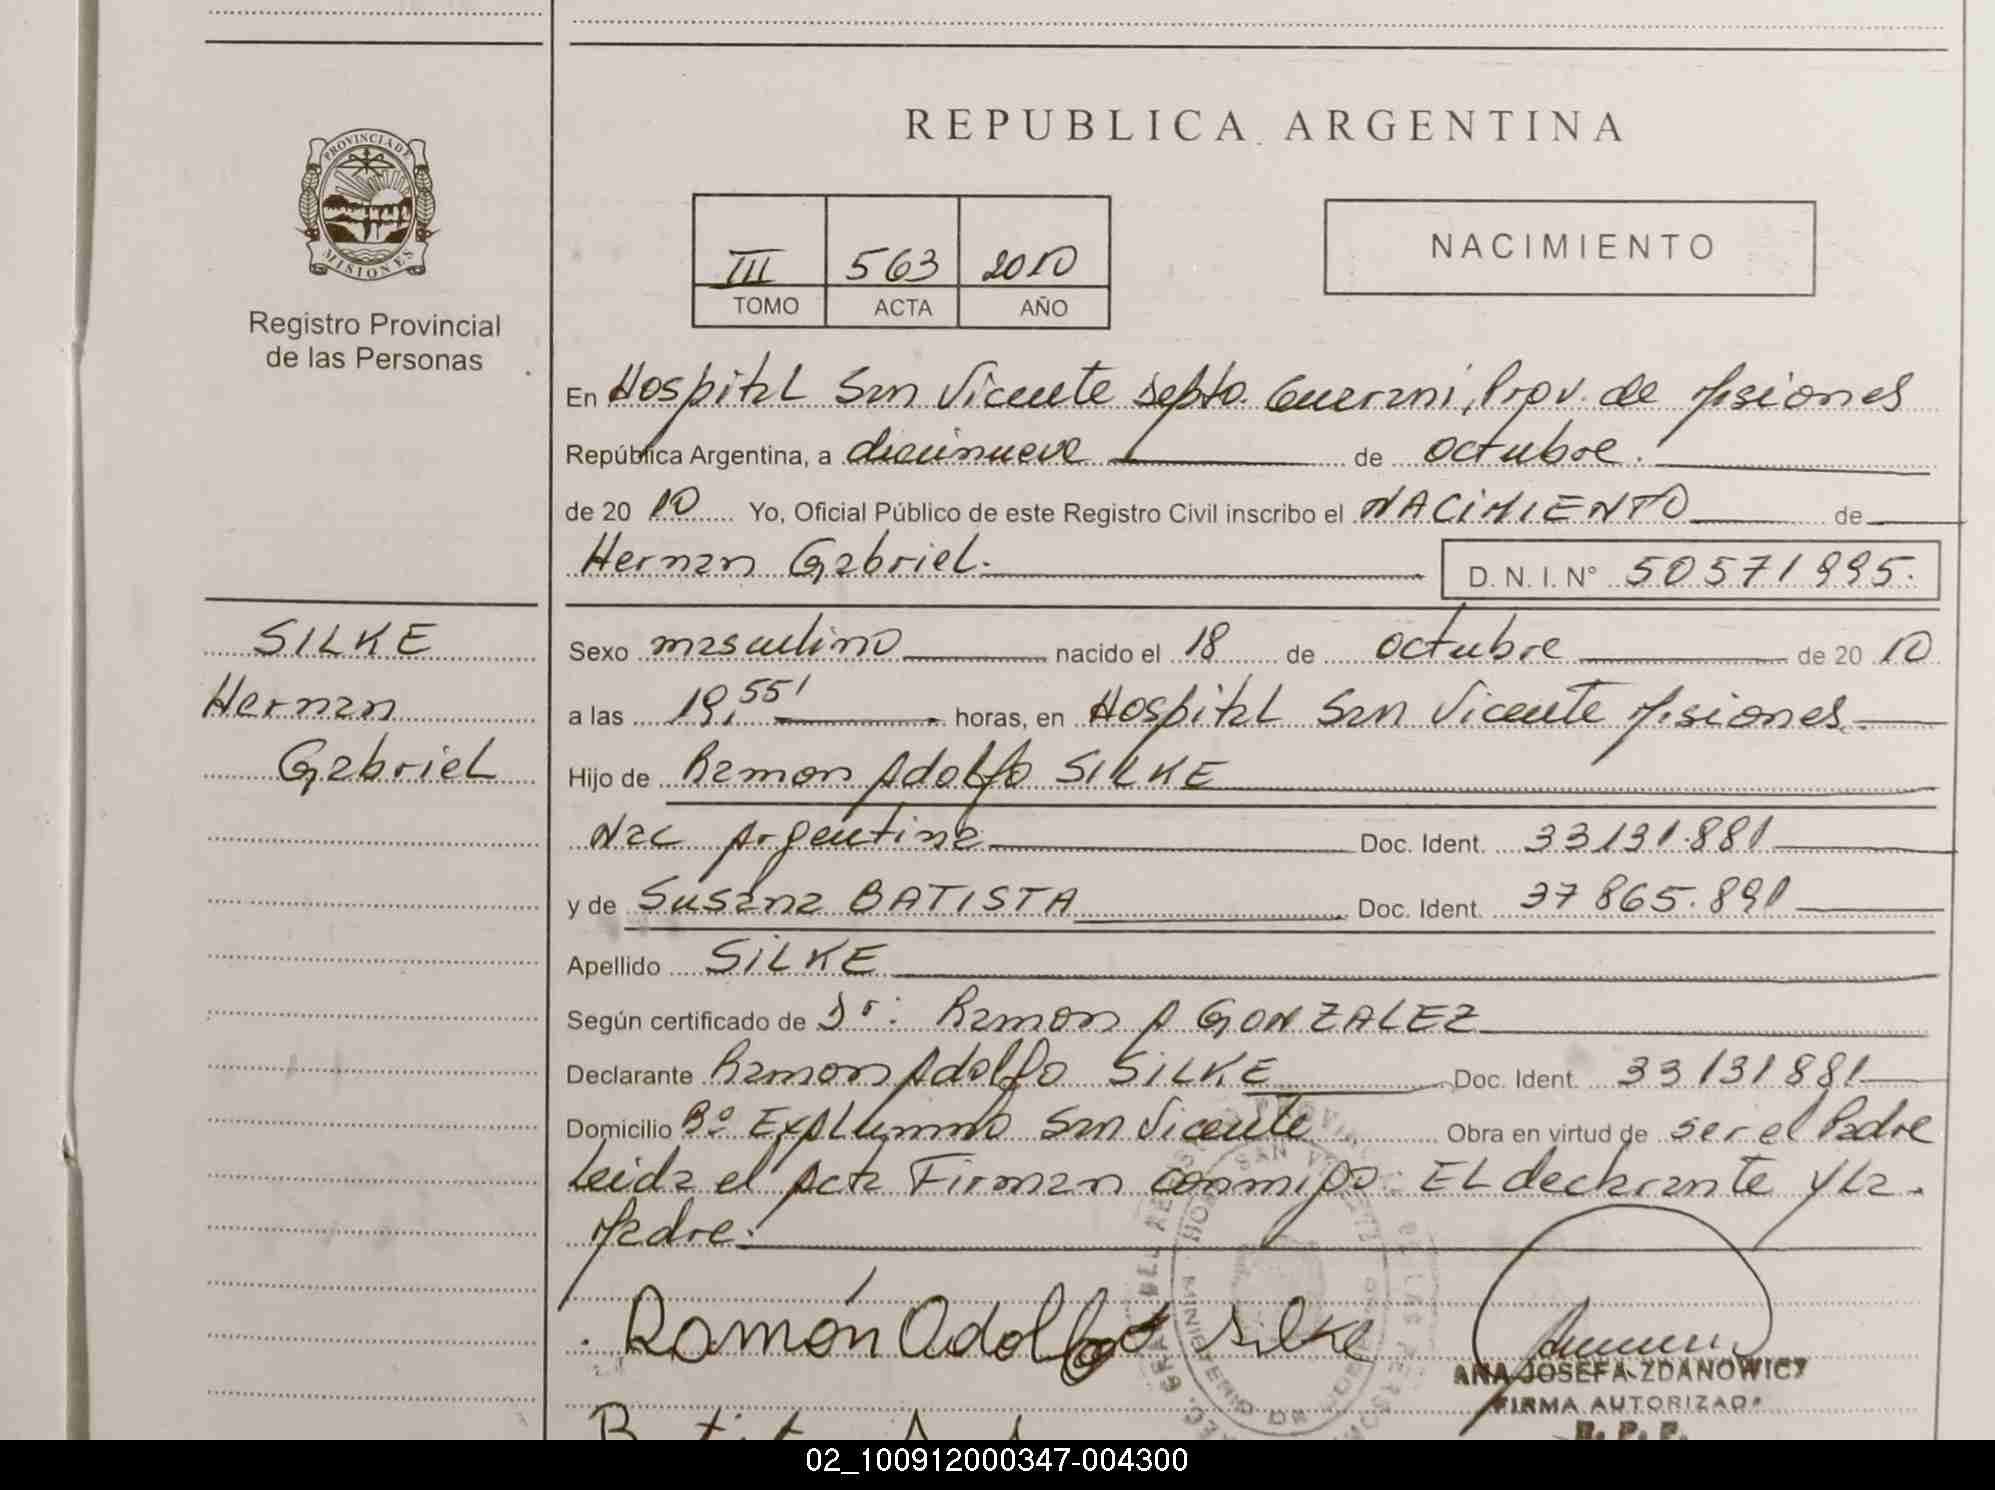 PROVINCIA DE
MISIONES
Registro Provincial
de las Personas
REPUBLICA ARGENTINA
III 563 2010
TOMO ACTA AÑO
NACIMIENTO
En Hospital San Vicente Depto. Guarani, Prov. de Misiones
República Argentina, a diecinueve de octubre.
de 2010 Yo, Oficial Público de este Registro Civil inscribo el NACIMIENTO de
Hernan Gabriel. D. N. I. N° 50571995.
SILKE
Hernan
Gabriel
Sexo masculino nacido el 18 de octubre de 2010
a las 19,55' horas, en Hospital San Vicente Misiones.
Hijo de Ramon Adolfo SILKE
Nac Argentina Doc. Ident. 33131.881
y de Susana BATISTA Doc. Ident. 37865.891
Apellido SILKE
Según certificado de Dr: Ramon A GONZALEZ
Declarante Ramon Adolfo SILKE Doc. Ident. 33131881
Domicilio Bº San Vicente Obra en virtud de ser el Padre
Leida el Acta Firman conmigo: EL declarante y La
Madre.
Ramón Adolfo Silke
ANA JOSEFA ZDANOWICZ
FIRMA AUTORIZADA
R. P. P.
02_100912000347-004300